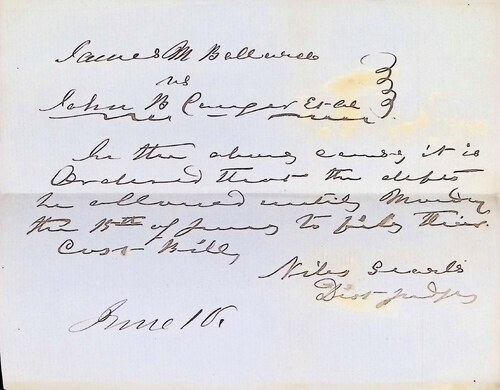 James M Ballard
vs
John B Conger Et al
In the above cause, it is
Ordered that the defts
be allowed until Monday
the 15th of June to file their
Cost Bill,
Niles Searls
Dist Judge
June 10.